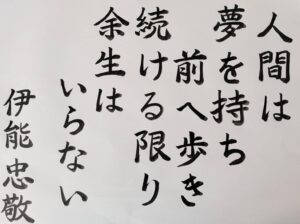 人間は
夢を持ち
前へ歩き
続ける限り
余生は
いらない
伊能忠敬